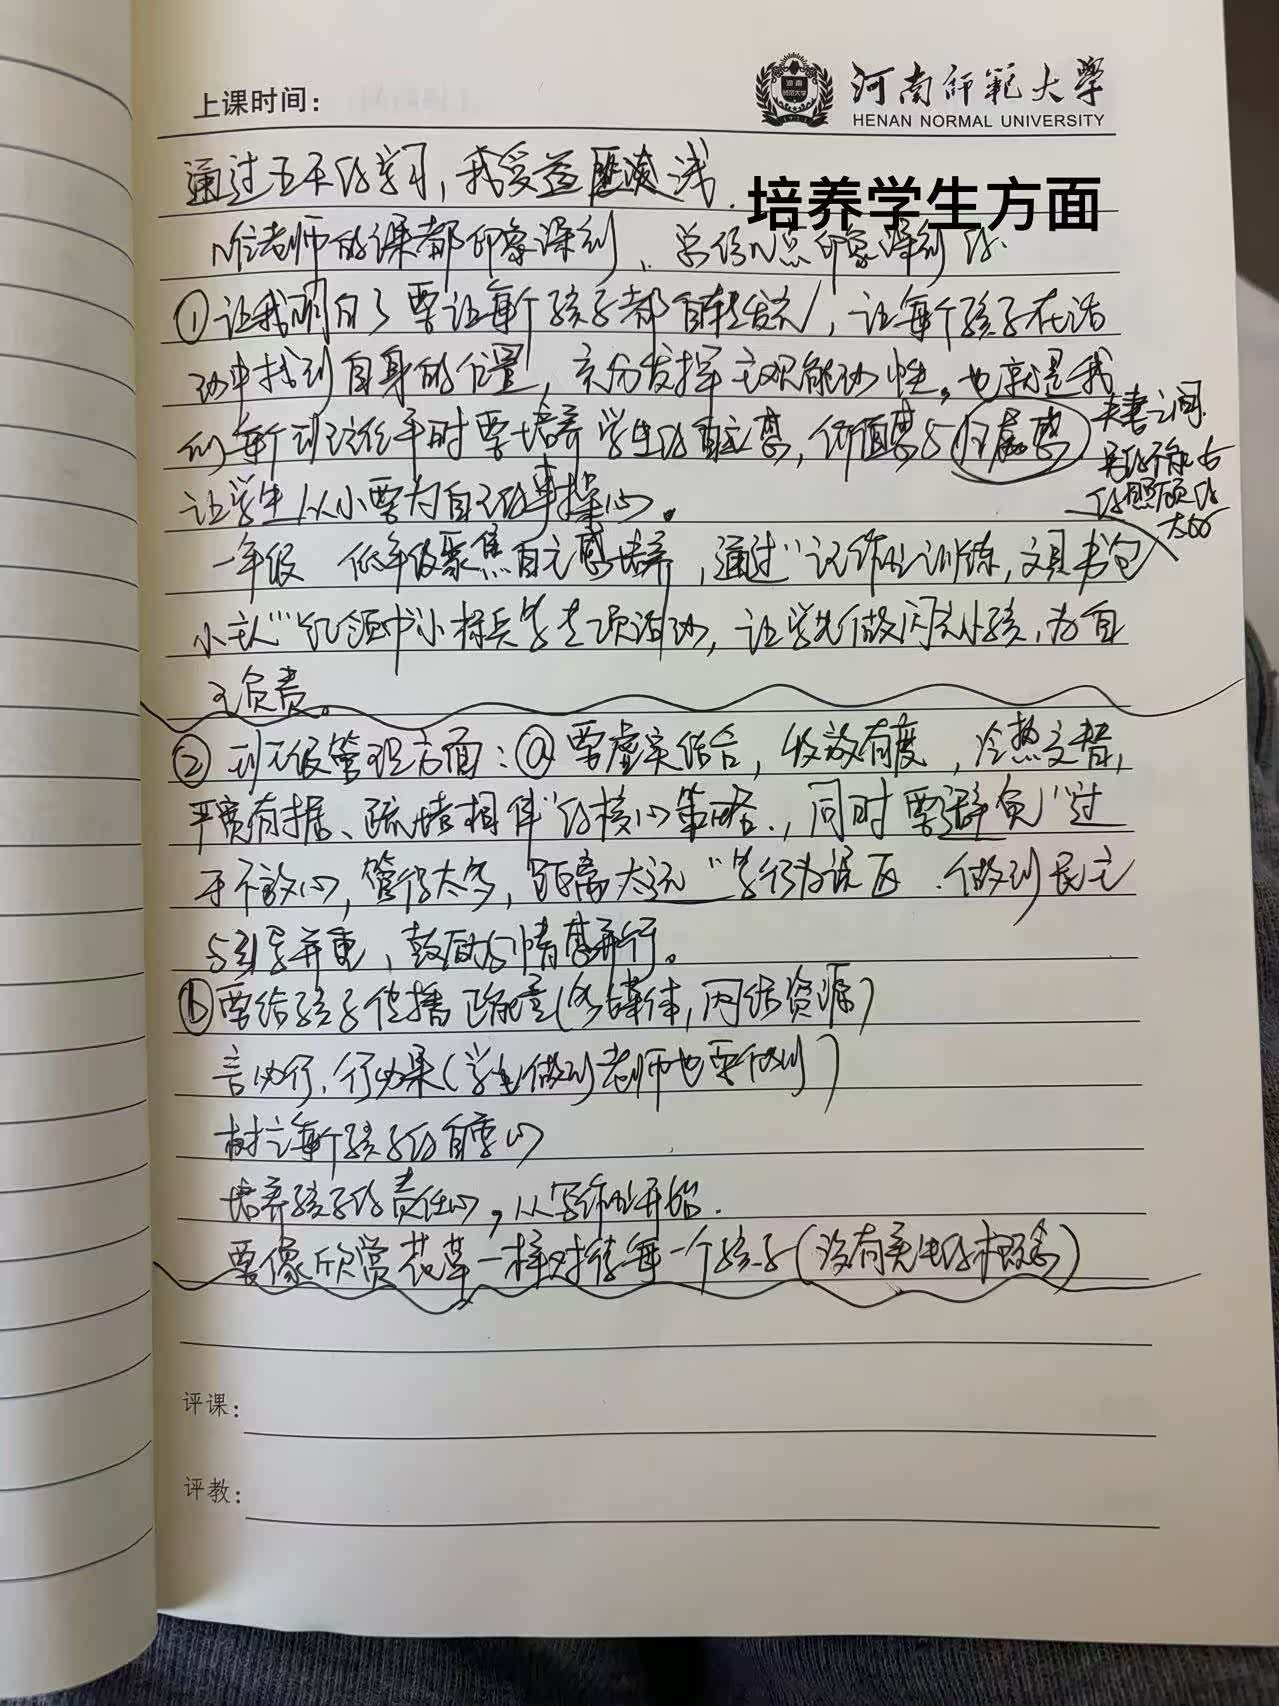 上课时间：
河南师范大学
HENAN NORMAL UNIVERSITY
通过五天的学习，我受益匪浅浅.
培养学生方面
N位老师的课都印象深刻，总结N点印象深刻的.
①让我明白了要让每个孩子都自转发亮，让每个孩子在活
动中找到自身的位置，充分发挥主观能动性。也就是我
们每个班主任平时要培养学生的自主感，价值感与归属感
夫妻之间
让学生从小要为自己的事操心。
一年级 低年级聚焦自主感培养，通过“记作业训练，文具书包
小主人”“红领巾小标兵等专项活动，让学生做闪亮小孩，为自
己负责。
②班级管理方面：ⓐ要虚实结合，收放有度，冷热交替，
严宽有据、疏堵相伴”的核心策略.，同时要避免“过
于不放心，管得太多，距离太远”等行为误区.做到民主
与引导并重，鼓励与惰葚并行。
ⓑ要给孩子传播正能量(多媒体，网络资源)
言必行，行必果(学生做到老师也要做到)
树立每个孩子的自尊心
培养孩子的责任心，从写作业开始.
要像欣赏花草一样对待每一个孩子(没有差生的概念)
评课：
评教：